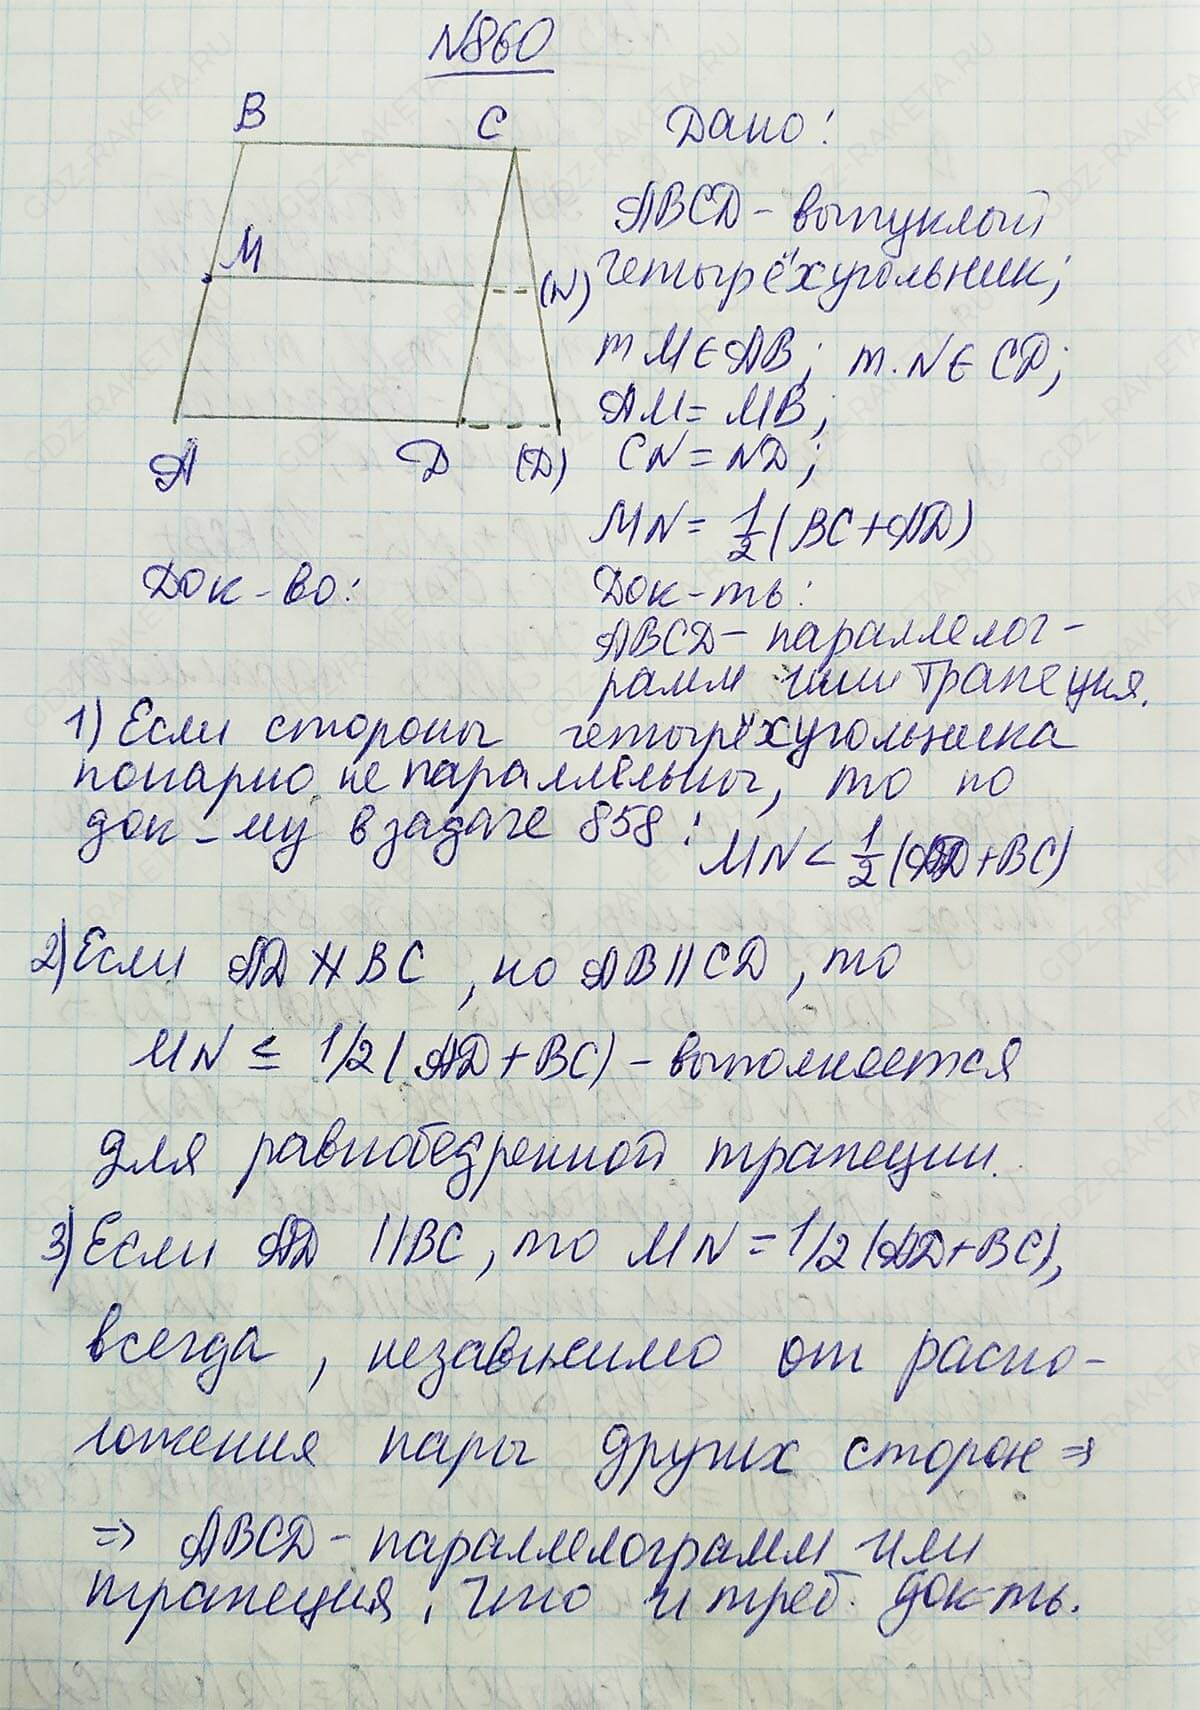 №860
B
C
Дано:
ABCD - выпуклый
четырёхугольник;
M
(N)
т M ∈ AB; т. N ∈ CD;
AM = MB;
A
D
(D)
CN = ND;
MN = 1/2 (BC + AD)
Док-во:
Док-ть:
ABCD - параллелог-
рамм или трапеция.
1) Если стороны четырёхугольника
попарно не параллельны, то по
док-му в задаче 858:
MN < 1/2 (AD + BC)
2) Если AD ∦ BC, но AB || CD, то
MN ≤ 1/2 (AD + BC) - выполняется
для равнобедренной трапеции.
3) Если AD || BC, то MN = 1/2 (AD + BC),
всегда, независимо от распо-
ложения пары других сторон ⇒
⇒ ABCD - параллелограмм или
трапеция, что и треб. док-ть.